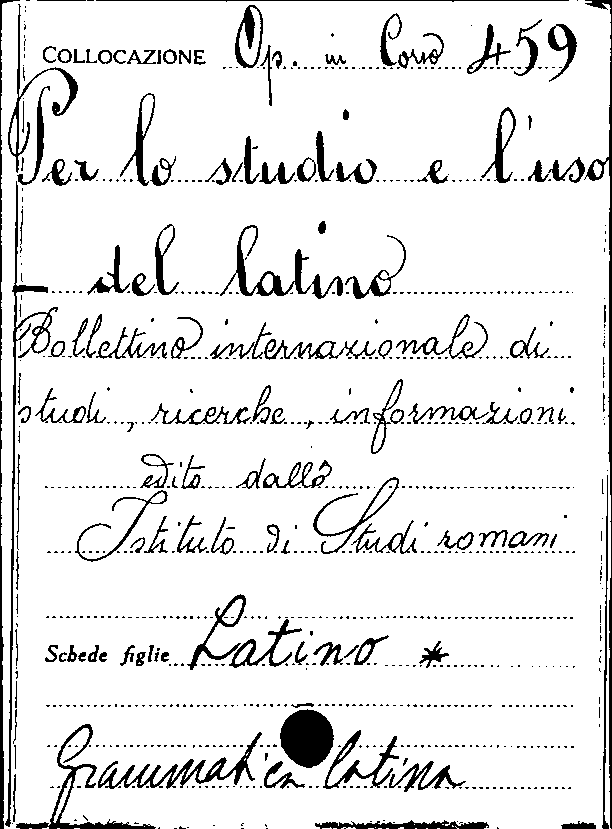 COLLOCAZIONE Op. in Corso 459
Per lo studio e l'uso
- del latino
Bollettino internazionale di
studi, ricerche, informazioni
edito dallo
Istituto di Studi romani
Schede figlie Latino *
Grammatica latina